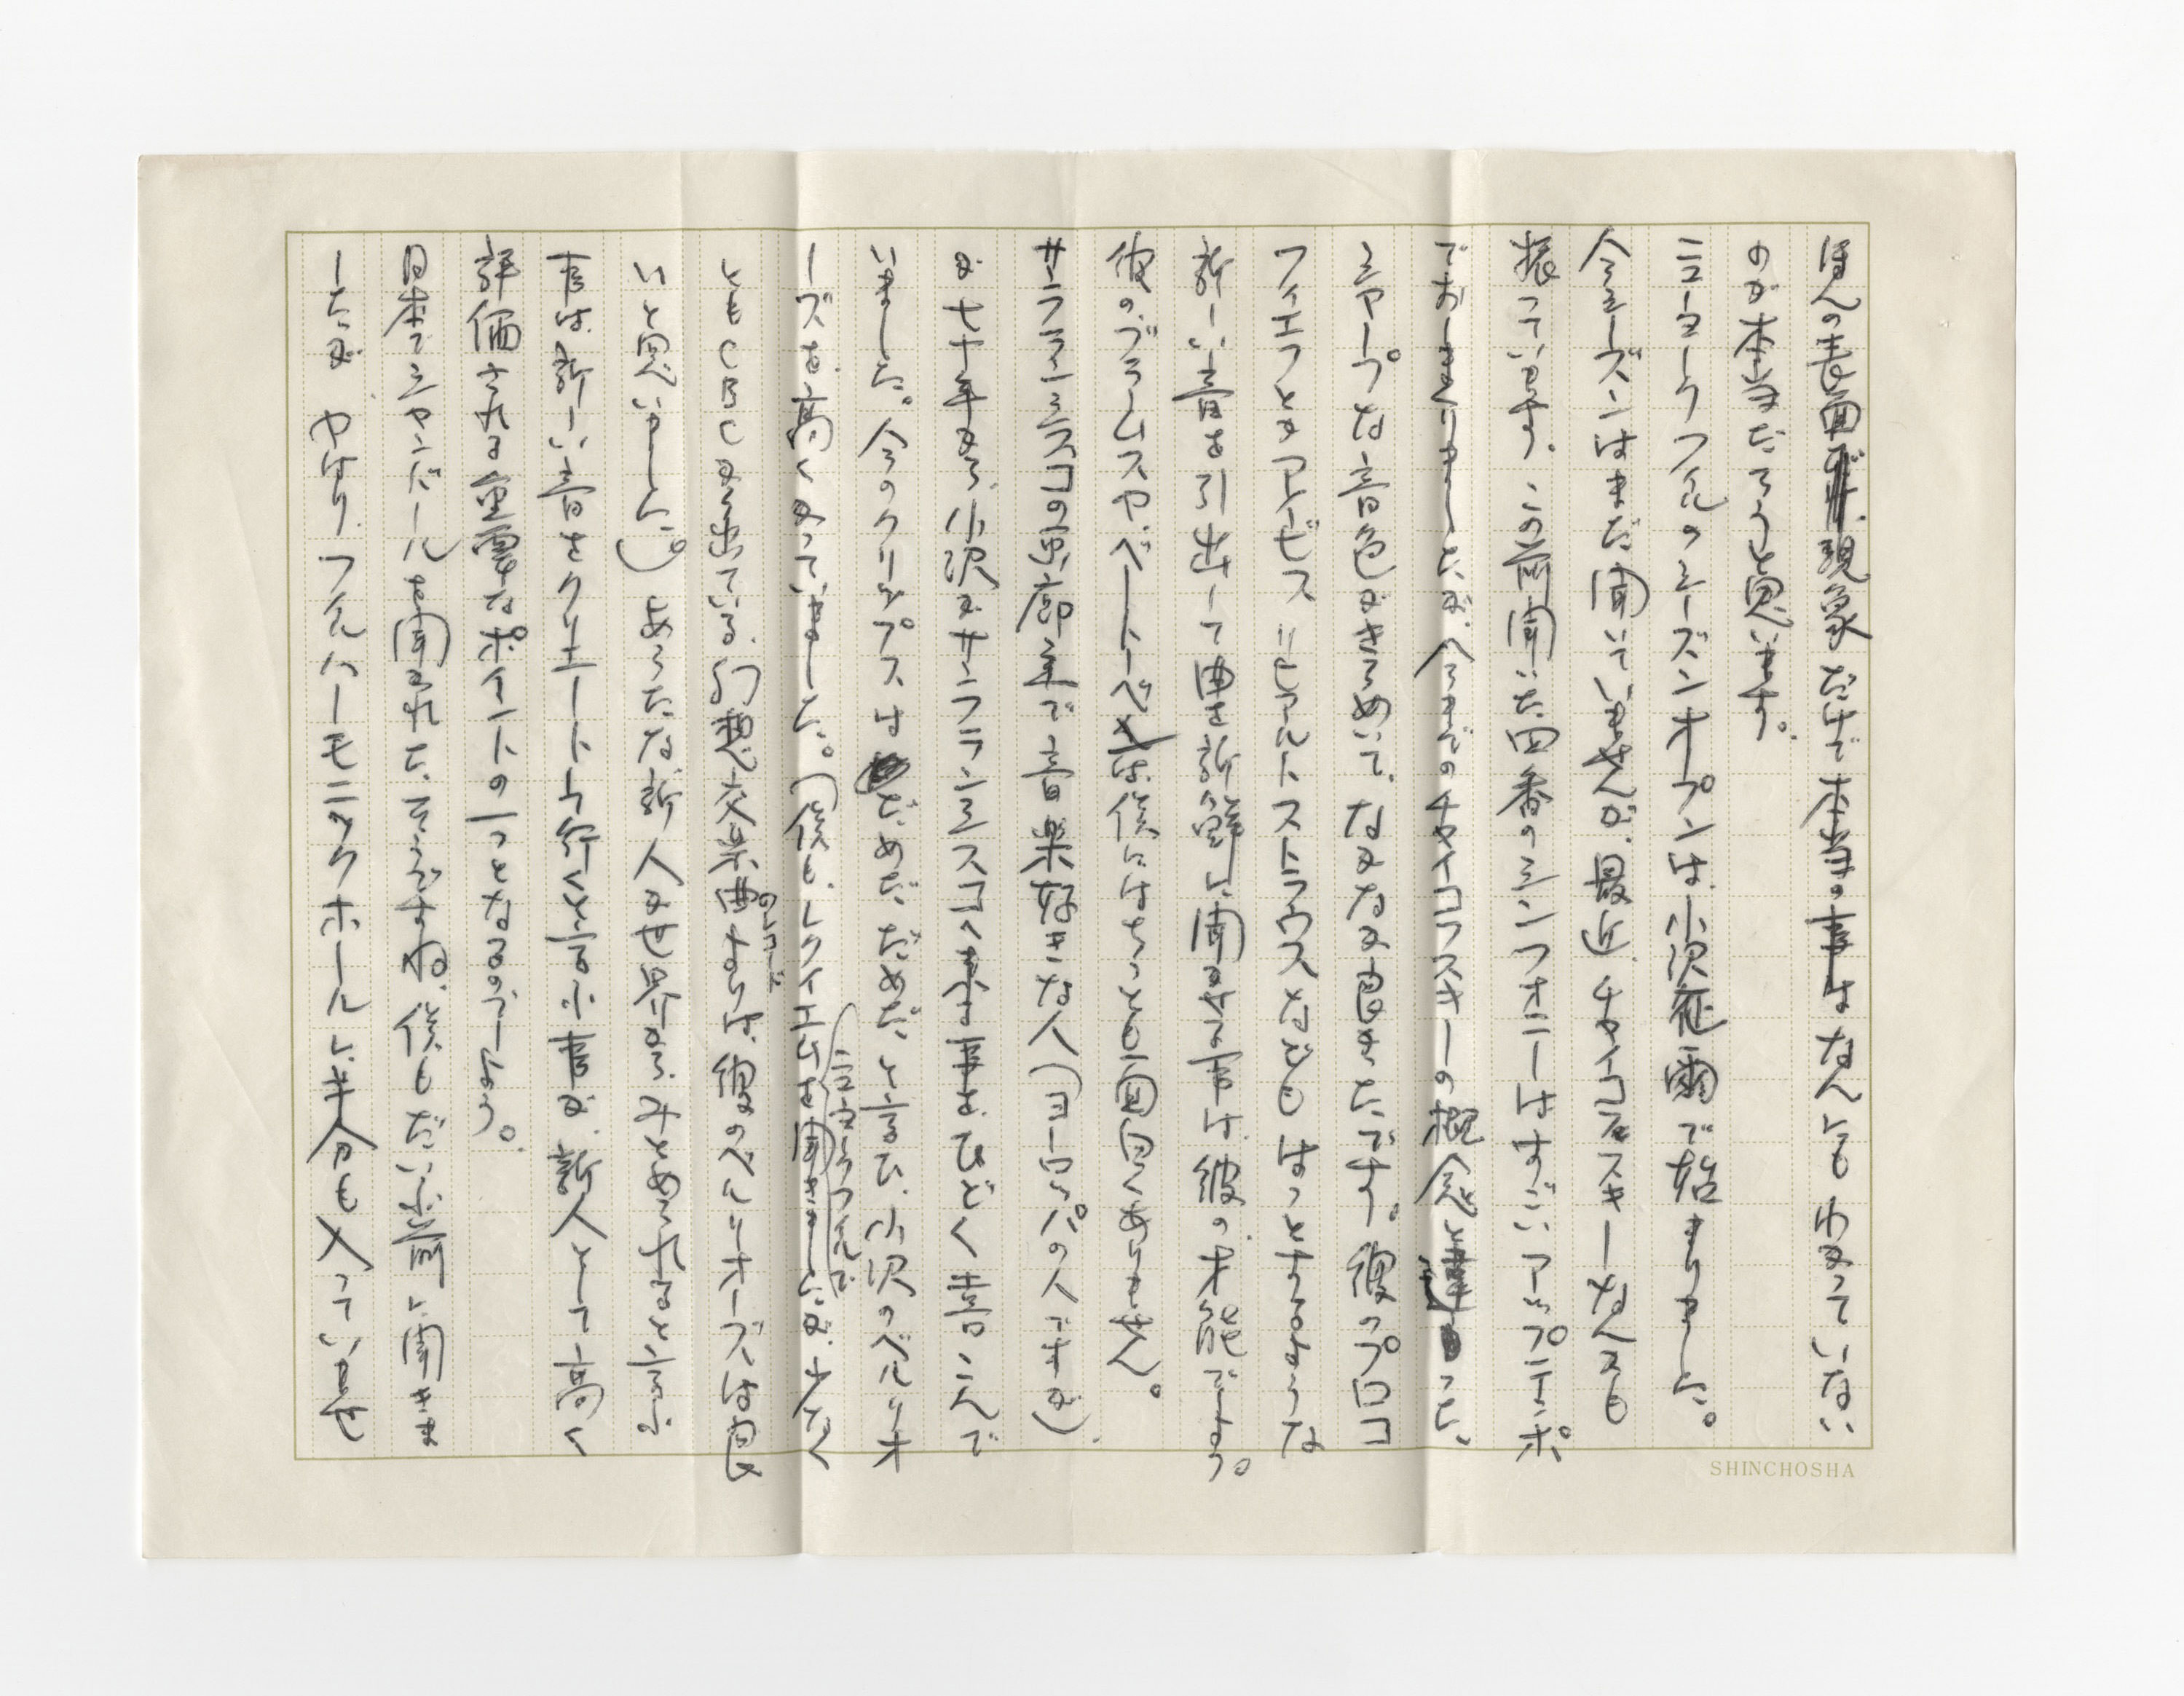 ほんの表面現象だけで本当の事はなんにもわかっていない
のが本当だろうと思います。
ニューヨークフィルのシーズンオープンは、小沢征爾で始まりました。
今シーズンはまだ聞いていませんが、最近、チャイコフスキーなんかも
振っています。この前聞いた四番のシンフォニーはすごいアップテンポ
でおしまくりましたが、今までのチャイコフスキーの概念と違った、
シャープな音色がきらめいて、なかなか良かったです。彼のプロコ
フィエフとかアイビス リヒァルトストラウスなども はっとするような
新しい音を引出して曲を新鮮に聞かせる事は、彼の才能でしょう。
彼の、ブラームスや、ベートーベンは、僕にはちっとも面白くありません。
サンフランシスコの画廊主で音楽好きな人(ヨーロッパの人ですが)、
が七十年から、小沢がサンフランシスコへ来る事を、ひどく喜こんで
いました。今のクリップスはだめだだめだ、と言ひ、小沢のベルリオ
ーズを高くかっていました。(僕も、レクイエムをニューヨークフィルで聞きましたが、少なく
ともCBCから出ている、幻想交響曲のレコードよりは、彼のベルリオーズは良
いと思いました。) あらたな新人が世界から、みとめられると言ふ
事は、新しい音をクリエートして行くと言ふ事が、新人として高く
評価される重要なポイントの一つとなるのでしょう。
日本でシャンドールを聞かれた、そうですね、僕もだいぶ前に聞きま
したが、やはり、フィルハーモニックホールに半分も入っていませ
SHINCHOSHA